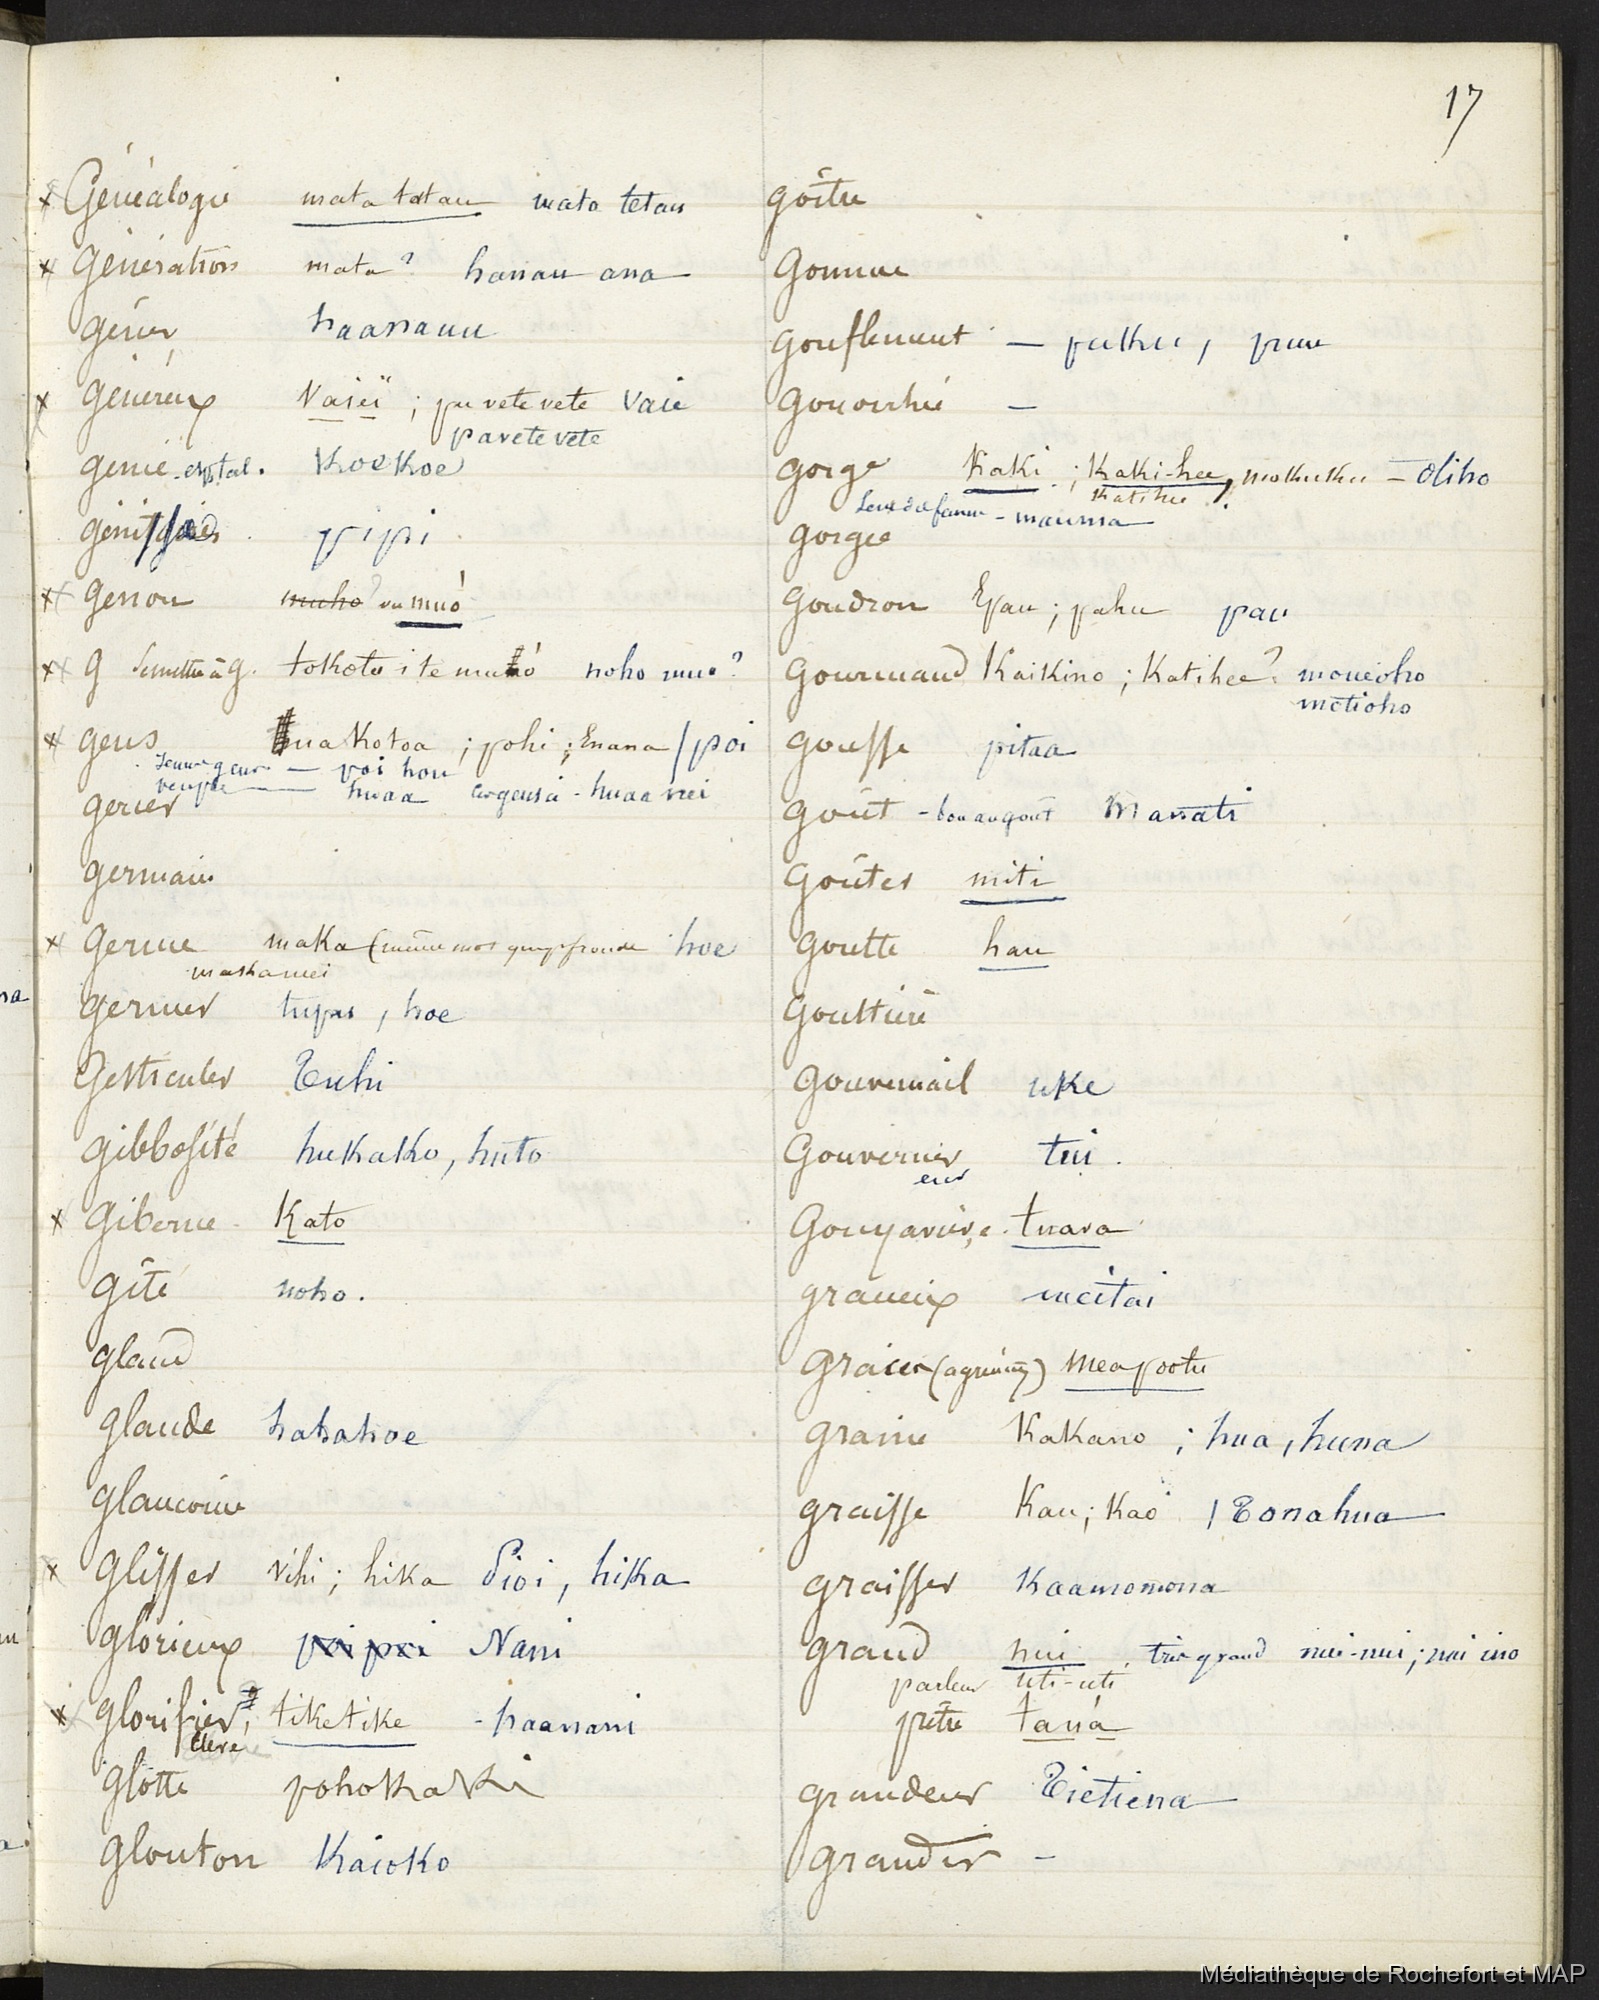 17
Généalogie mata tatau mata tetau
Génération mata? hanau ana
gêner haanauu
généreux vaieï ; pu vetevete vaie
pavetevete
génie koekoe
pipi
genou muho ou muó
g Se mettre à g. tokotu i te muó noho muo?
gens Enua Kotoa ; pohi ; Enana / poi
Jeunes gens — poi hou
huaa - huaa nei
gercer
germain
germe maka (même mot que fronde hoe
makamei
germer tupu, hoe
Gesticuler Tuhi
gibbosité hukako, huto
Giberne Kato
gîte noho.
gland
glande hahahoe
glaucome
Glisser vihi ; hika Pioi, hika
glorieux Nani
glorifier, tiketike - haanani
élevé
glotte pohokaki
glouton Kaioko
goître
Gomme
gonflement — puku, puu
gonorrhée —
gorge Kaki ; Kaki-hee, mokuku — oliho
katihee
- mauma
gorgée
goudron Epau ; pahu pau
gourmand Kaikino ; Katihee? moueoho
metioho
gousse pitaa
goût - bon au goût Manati
Goûter miti
goutte hau
Gouttière
gouvernail uke
Gouverner tui.
eur
Gouyavier, e. tuava
gracieux meitai
Gracieux (agréing) meapootu
graine Kakano ; hua, huna
graisse Kau ; Kao / Tonahua
graisser Kaamomona
grand nui, très grand nui-nui ; nui ino
parleur uti-uti
prêtre tauá
grandeur Tietiena
grandir —
Médiathèque de Rochefort et MAP